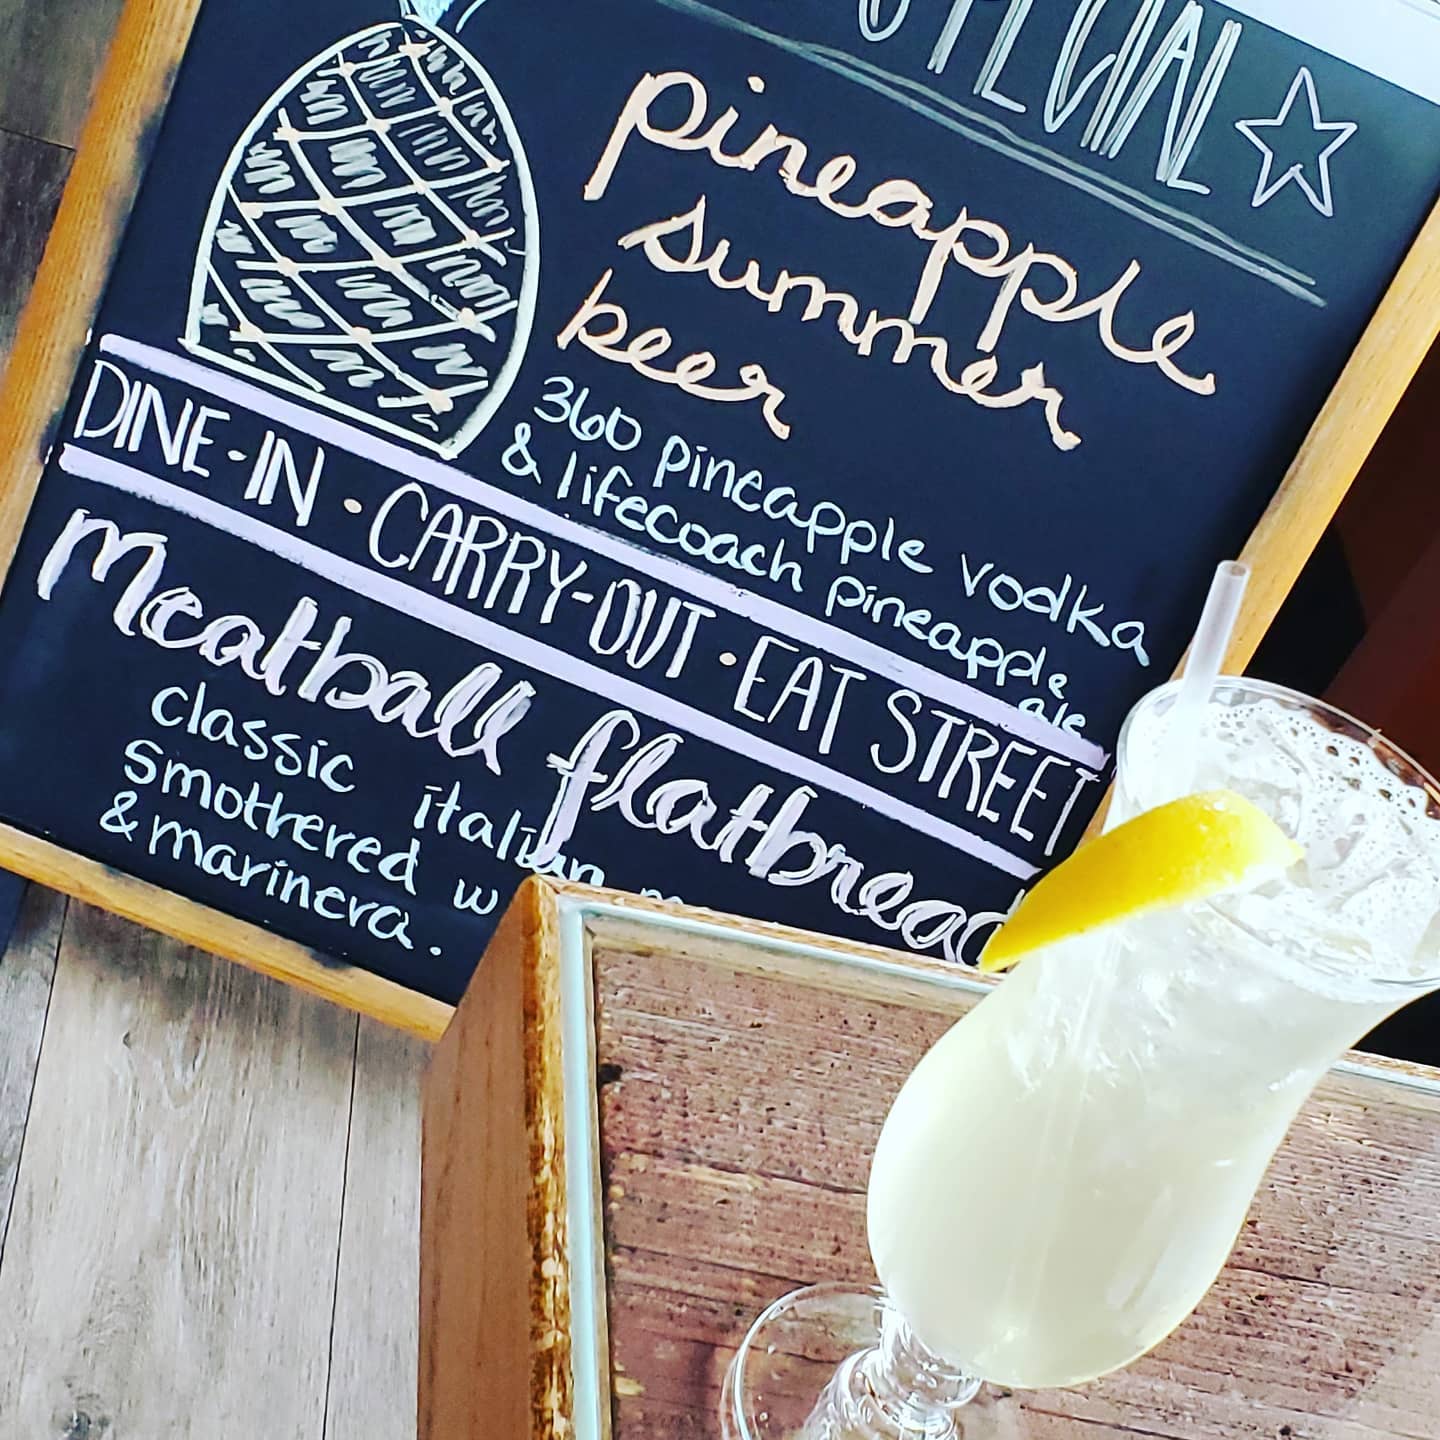 SPECIAL
pineapple
summer
beer
360 pineapple vodka
& lifecoach pineapple
ale
DINE-IN · CARRY-OUT · EAT STREET
meatball flatbread
classic italian
smothered w
& marinera.